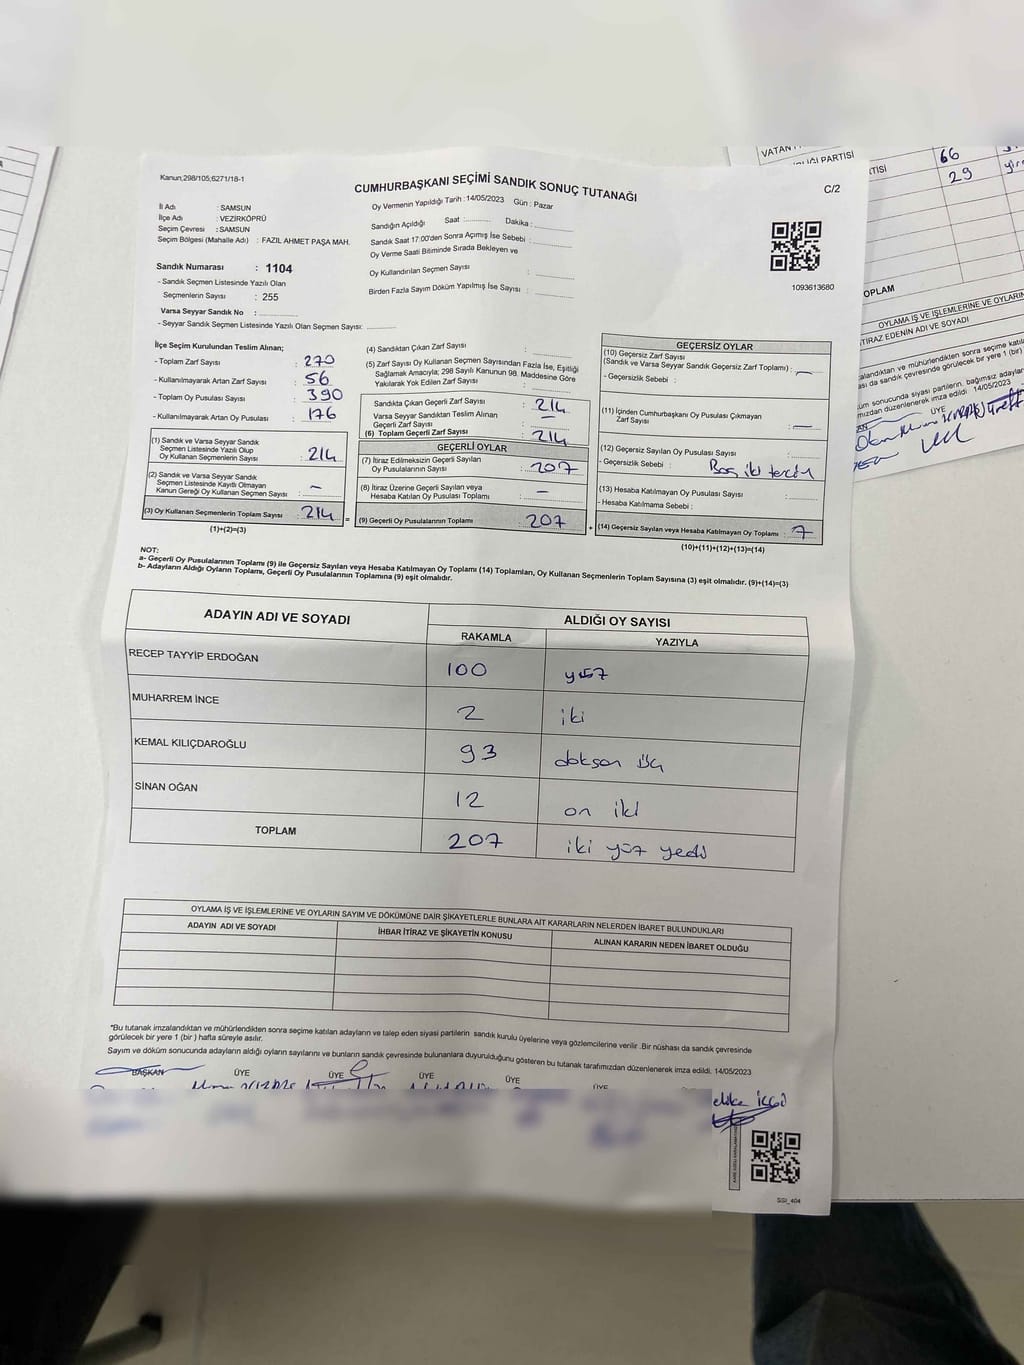 Kanun;298/105;6271/18-1
CUMHURBAŞKANI SEÇİMİ SANDIK SONUÇ TUTANAĞI
C/2
İl Adı : SAMSUN
İlçe Adı : VEZİRKÖPRÜ
Seçim Çevresi : SAMSUN
Seçim Bölgesi (Mahalle Adı) : FAZIL AHMET PAŞA MAH.
Sandık Numarası : 1104
- Sandık Seçmen Listesinde Yazılı Olan
Seçmenlerin Sayısı : 255
Varsa Seyyar Sandık No :
- Seyyar Sandık Seçmen Listesinde Yazılı Olan Seçmen Sayısı:
Oy Vermenin Yapıldığı Tarih : 14/05/2023 Gün : Pazar
Sandığın Açıldığı Saat : Dakika :
Sandık Saat 17:00'den Sonra Açımış İse Sebebi :
Oy Verme Saati Bitiminde Sırada Bekleyen ve
Oy Kullandırılan Seçmen Sayısı :
Birden Fazla Sayım Döküm Yapılmış İse Sayısı :
1093613680
İlçe Seçim Kurulundan Teslim Alınan;
- Toplam Zarf Sayısı : 270
- Kullanılmayarak Artan Zarf Sayısı : 56
- Toplam Oy Pusulası Sayısı : 390
- Kullanılmayarak Artan Oy Pusulası : 176
(1) Sandık ve Varsa Seyyar Sandık
Seçmen Listesinde Yazılı Olup
Oy Kullanan Seçmenlerin Sayısı : 214
(2) Sandık ve Varsa Seyyar Sandık
Seçmen Listesinde Kayıtlı Olmayan
Kanun Gereği Oy Kullanan Seçmen Sayısı : –
(3) Oy Kullanan Seçmenlerin Toplam Sayısı : 214 =
(1)+(2)=(3)
(4) Sandıktan Çıkan Zarf Sayısı :
(5) Zarf Sayısı Oy Kullanan Seçmen Sayısından Fazla İse, Eşitliği
Sağlamak Amacıyla; 298 Sayılı Kanunun 98. Maddesine Göre
Yakılarak Yok Edilen Zarf Sayısı :
Sandıkta Çıkan Geçerli Zarf Sayısı : 214
Varsa Seyyar Sandıktan Teslim Alınan
Geçerli Zarf Sayısı : –
(6) Toplam Geçerli Zarf Sayısı : 214
GEÇERLİ OYLAR
(7) İtiraz Edilmeksizin Geçerli Sayılan
Oy Pusulalarının Sayısı : 207
(8) İtiraz Üzerine Geçerli Sayılan veya
Hesaba Katılan Oy Pusulası Toplamı : –
(9) Geçerli Oy Pusulalarının Toplamı : 207 +
GEÇERSİZ OYLAR
(10) Geçersiz Zarf Sayısı
(Sandık ve Varsa Seyyar Sandık Geçersiz Zarf Toplamı) : –
- Geçersizlik Sebebi :
(11) İçinden Cumhurbaşkanı Oy Pusulası Çıkmayan
Zarf Sayısı : –
(12) Geçersiz Sayılan Oy Pusulası Sayısı :
- Geçersizlik Sebebi : Boş iki tercih
(13) Hesaba Katılmayan Oy Pusulası Sayısı :
- Hesaba Katılmama Sebebi :
(14) Geçersiz Sayılan veya Hesaba Katılmayan Oy Toplamı : 7
(10)+(11)+(12)+(13)=(14)
NOT:
a- Geçerli Oy Pusulalarının Toplamı (9) ile Geçersiz Sayılan veya Hesaba Katılmayan Oy Toplamı (14) Toplamları, Oy Kullanan Seçmenlerin Toplam Sayısına (3) eşit olmalıdır. (9)+(14)=(3)
b- Adayların Aldığı Oyların Toplamı, Geçerli Oy Pusulalarının Toplamına (9) eşit olmalıdır.
ADAYIN ADI VE SOYADI ALDIĞI OY SAYISI
RAKAMLA YAZIYLA
RECEP TAYYİP ERDOĞAN 100 yüz
MUHARREM İNCE 2 iki
KEMAL KILIÇDAROĞLU 93 doksan üç
SİNAN OĞAN 12 on iki
TOPLAM 207 iki yüz yedi
OYLAMA İŞ VE İŞLEMLERİNE VE OYLARIN SAYIM VE DÖKÜMÜNE DAİR ŞİKAYETLERLE BUNLARA AİT KARARLARIN NELERDEN İBARET BULUNDUKLARI
ADAYIN ADI VE SOYADI İHBAR İTİRAZ VE ŞİKAYETİN KONUSU ALINAN KARARIN NEDEN İBARET OLDUĞU
*Bu tutanak imzalandıktan ve mühürlendikten sonra seçime katılan adayların ve talep eden siyasi partilerin sandık kurulu üyelerine veya gözlemcilerine verilir .Bir nüshası da sandık çevresinde
görülecek bir yere 1 (bir ) hafta süreyle asılır.
Sayım ve döküm sonucunda adayların aldığı oyların sayılarını ve bunların sandık çevresinde bulunanlara duyurulduğunu gösteren bu tutanak tarafımızdan düzenlenerek imza edildi. 14/05/2023
BAŞKAN ÜYE ÜYE ÜYE ÜYE ÜYE
SSI_404
VATAN
PARTİSİ
TİSİ 66
29
OPLAM
OYLAMA İŞ VE İŞLEMLERİNE VE OYLARIN
İTİRAZ EDENİN ADI VE SOYADI
14/05/2023
ÜYE